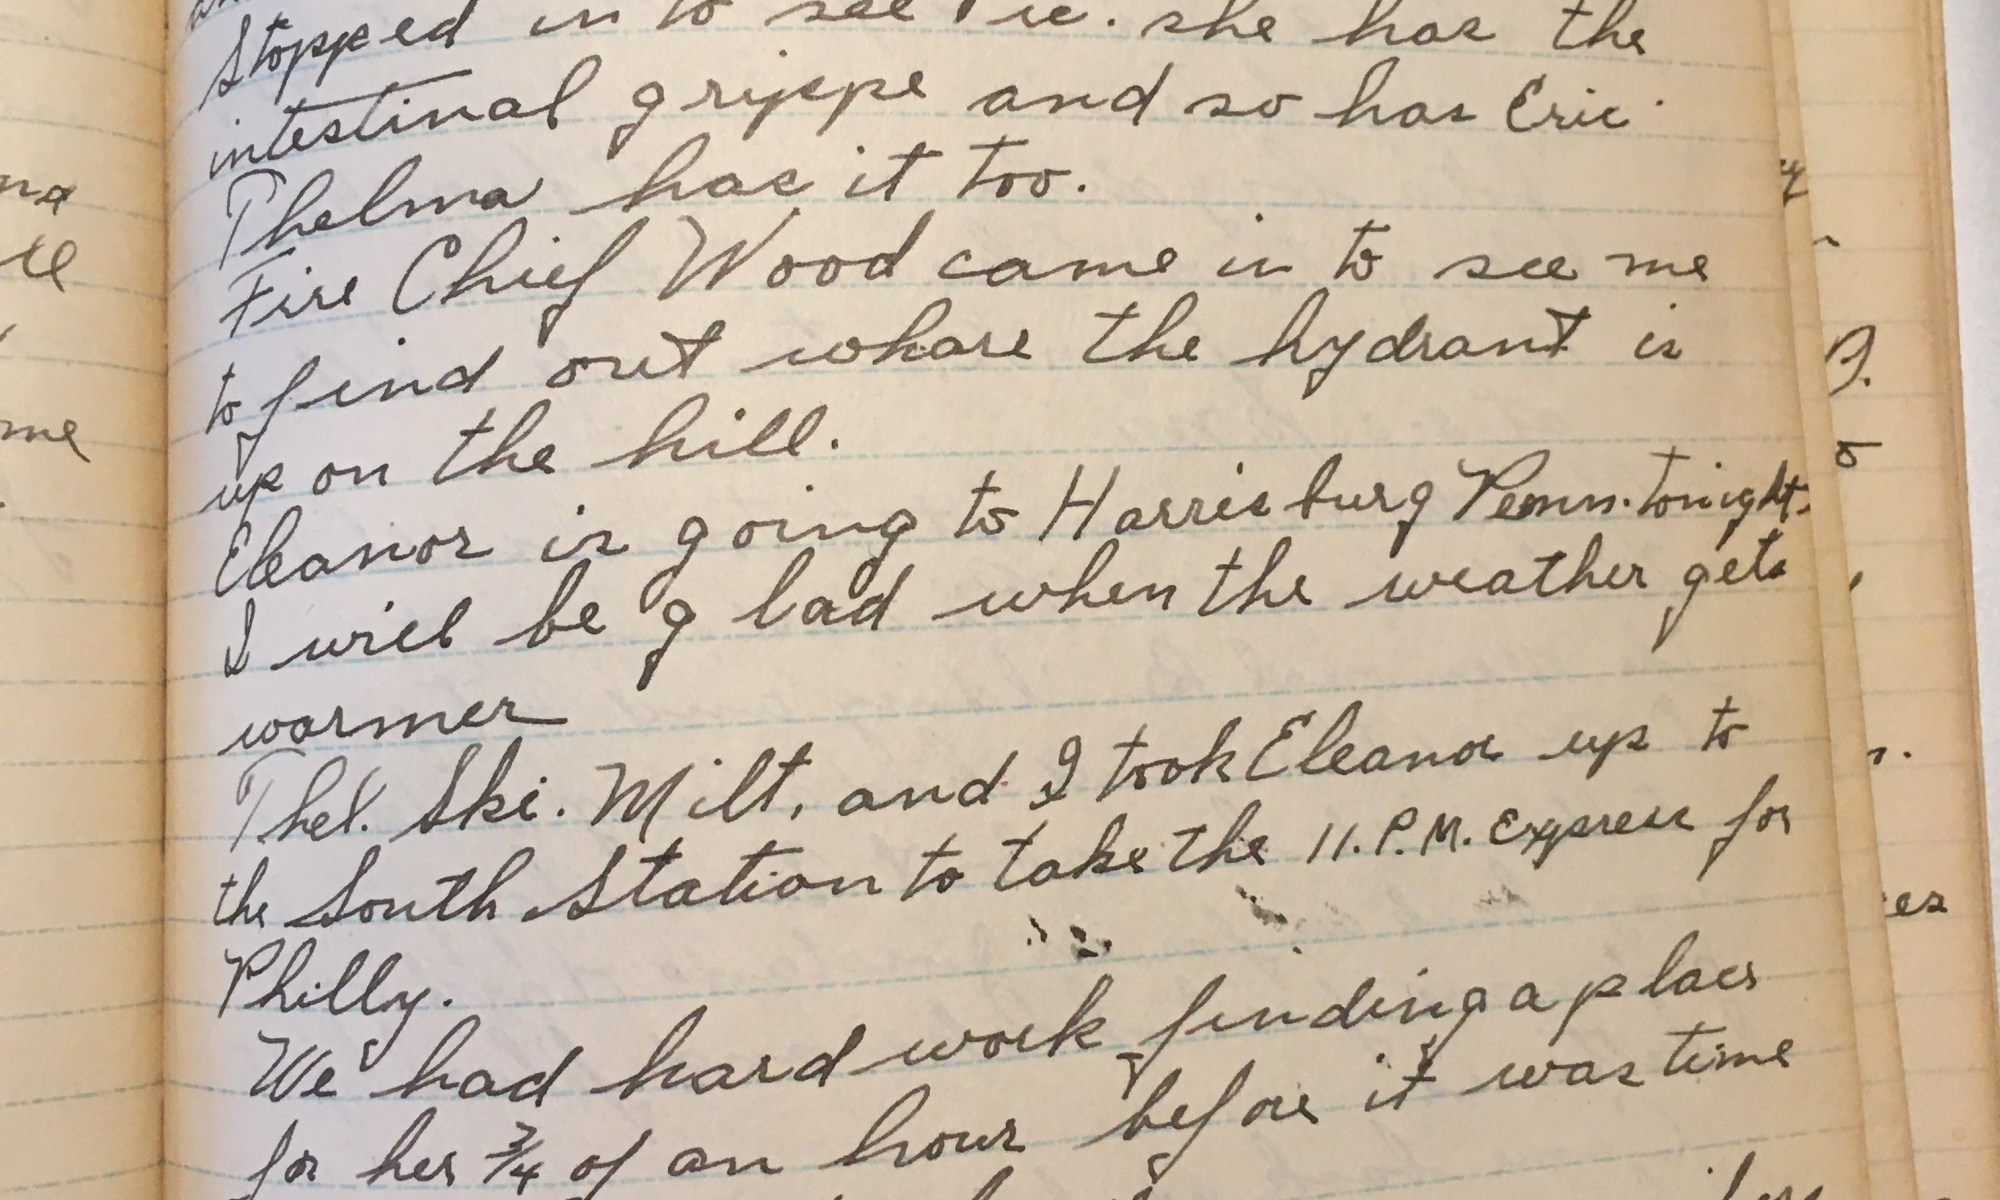 Stopped in to see Vic. she has the
intestinal grippe and so has Eric.
Thelma has it too.
Fire Chief Wood came in to see me
to find out whare the hydrant is
up on the hill.
Eleanor is going to Harrisburg Penn. tonight.
I will be glad when the weather gets
warmer
Thel. Ski. Milt. and I took Eleanor up to
the South Station to take the 11. P.M. Express for
Philly.
We had hard work finding a place
for her 3/4 of an hour before it was time